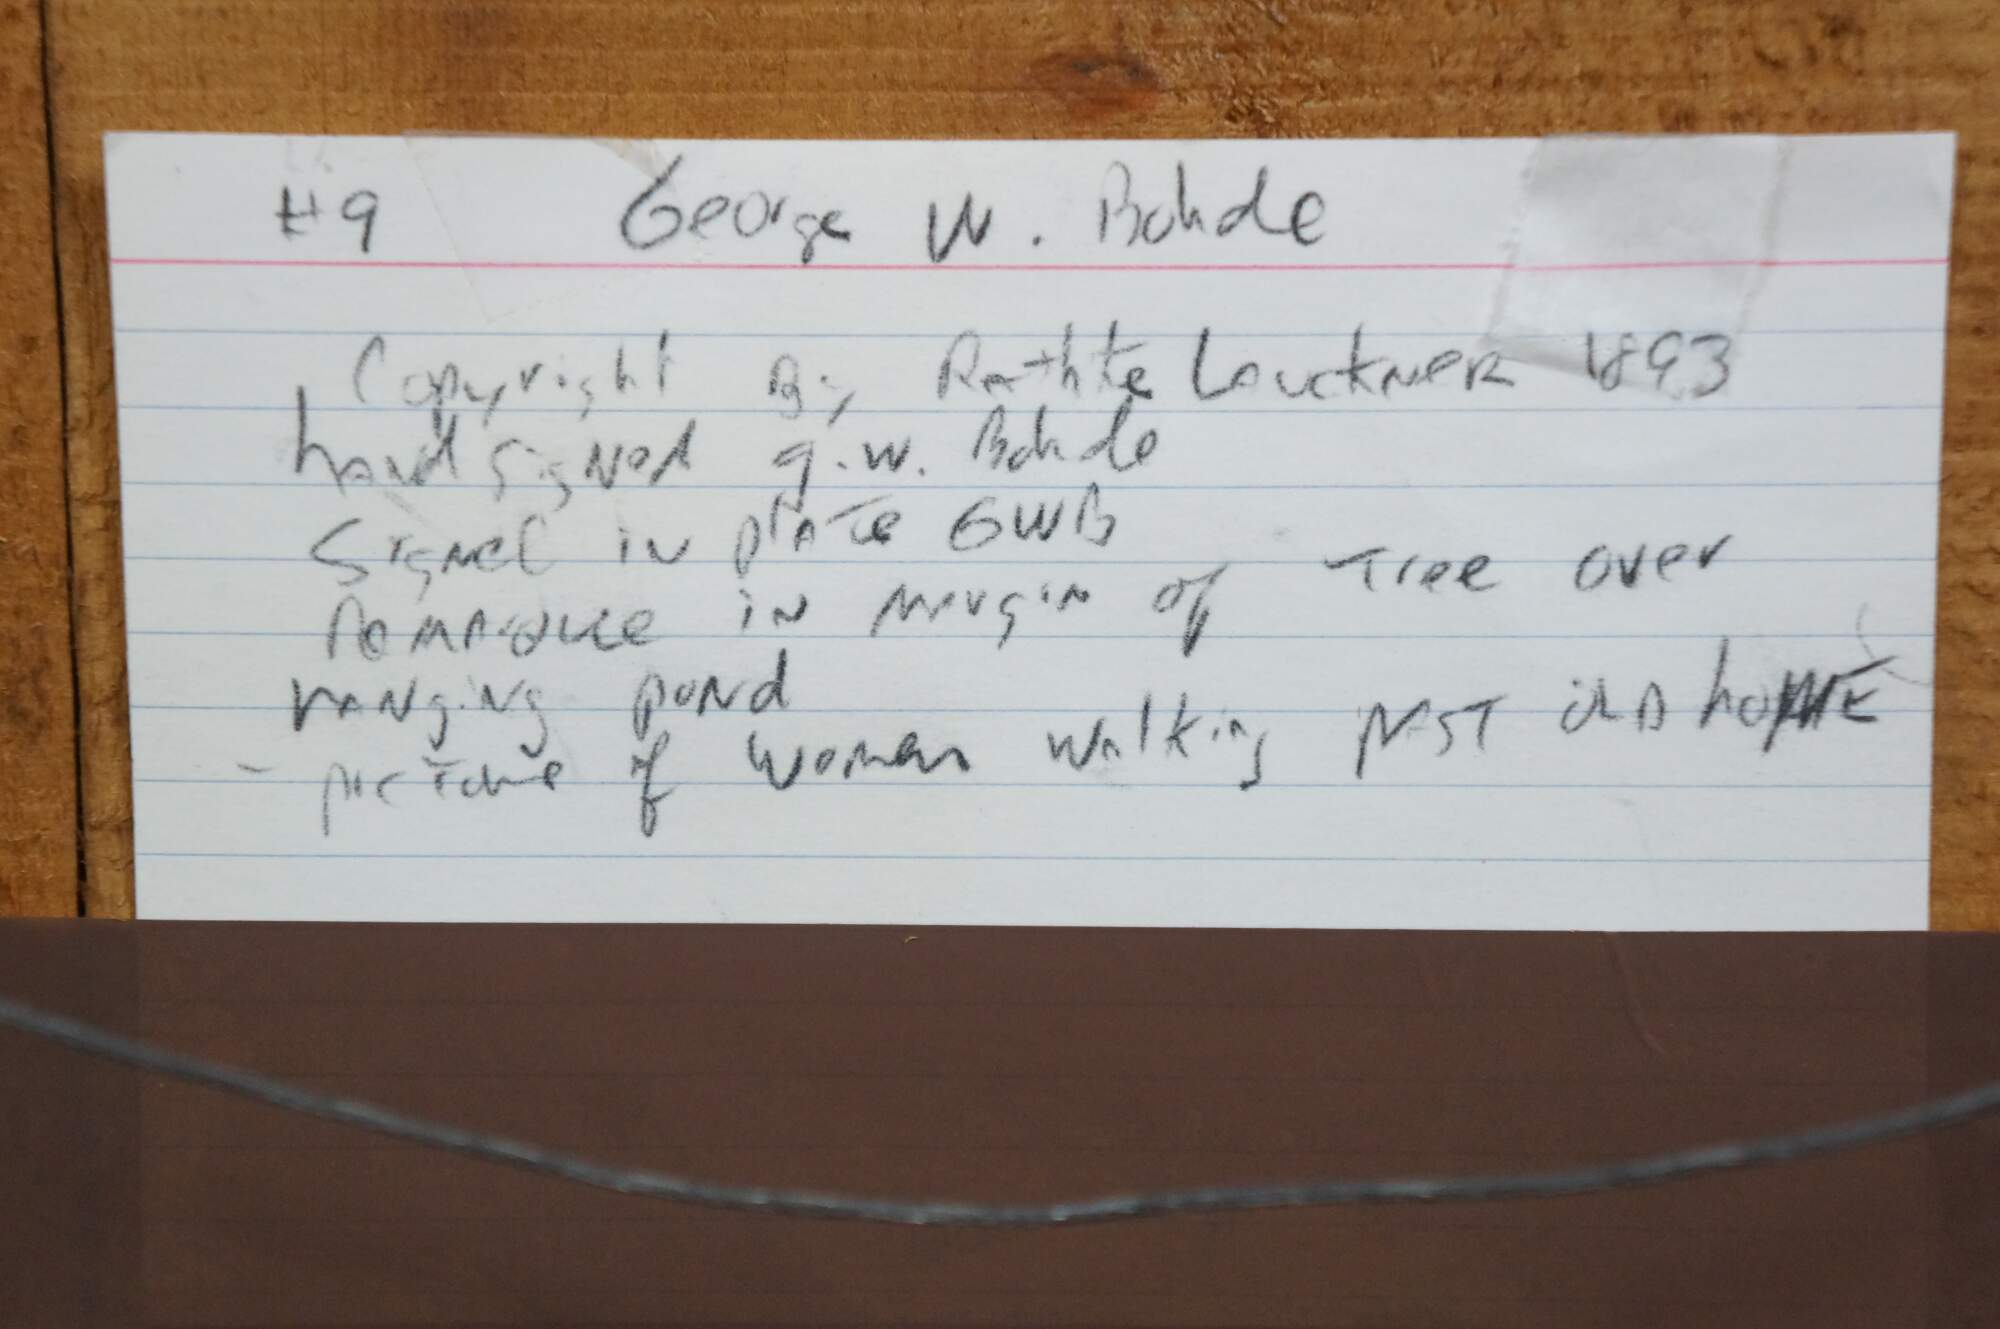 #9 George W. Bohde
Copyright By Rathke Louckner 1893
hand signed g.w. Bohde
Signed in plate GWB
remarque in margin of Tree over
hanging pond
- picture of women walking past old home